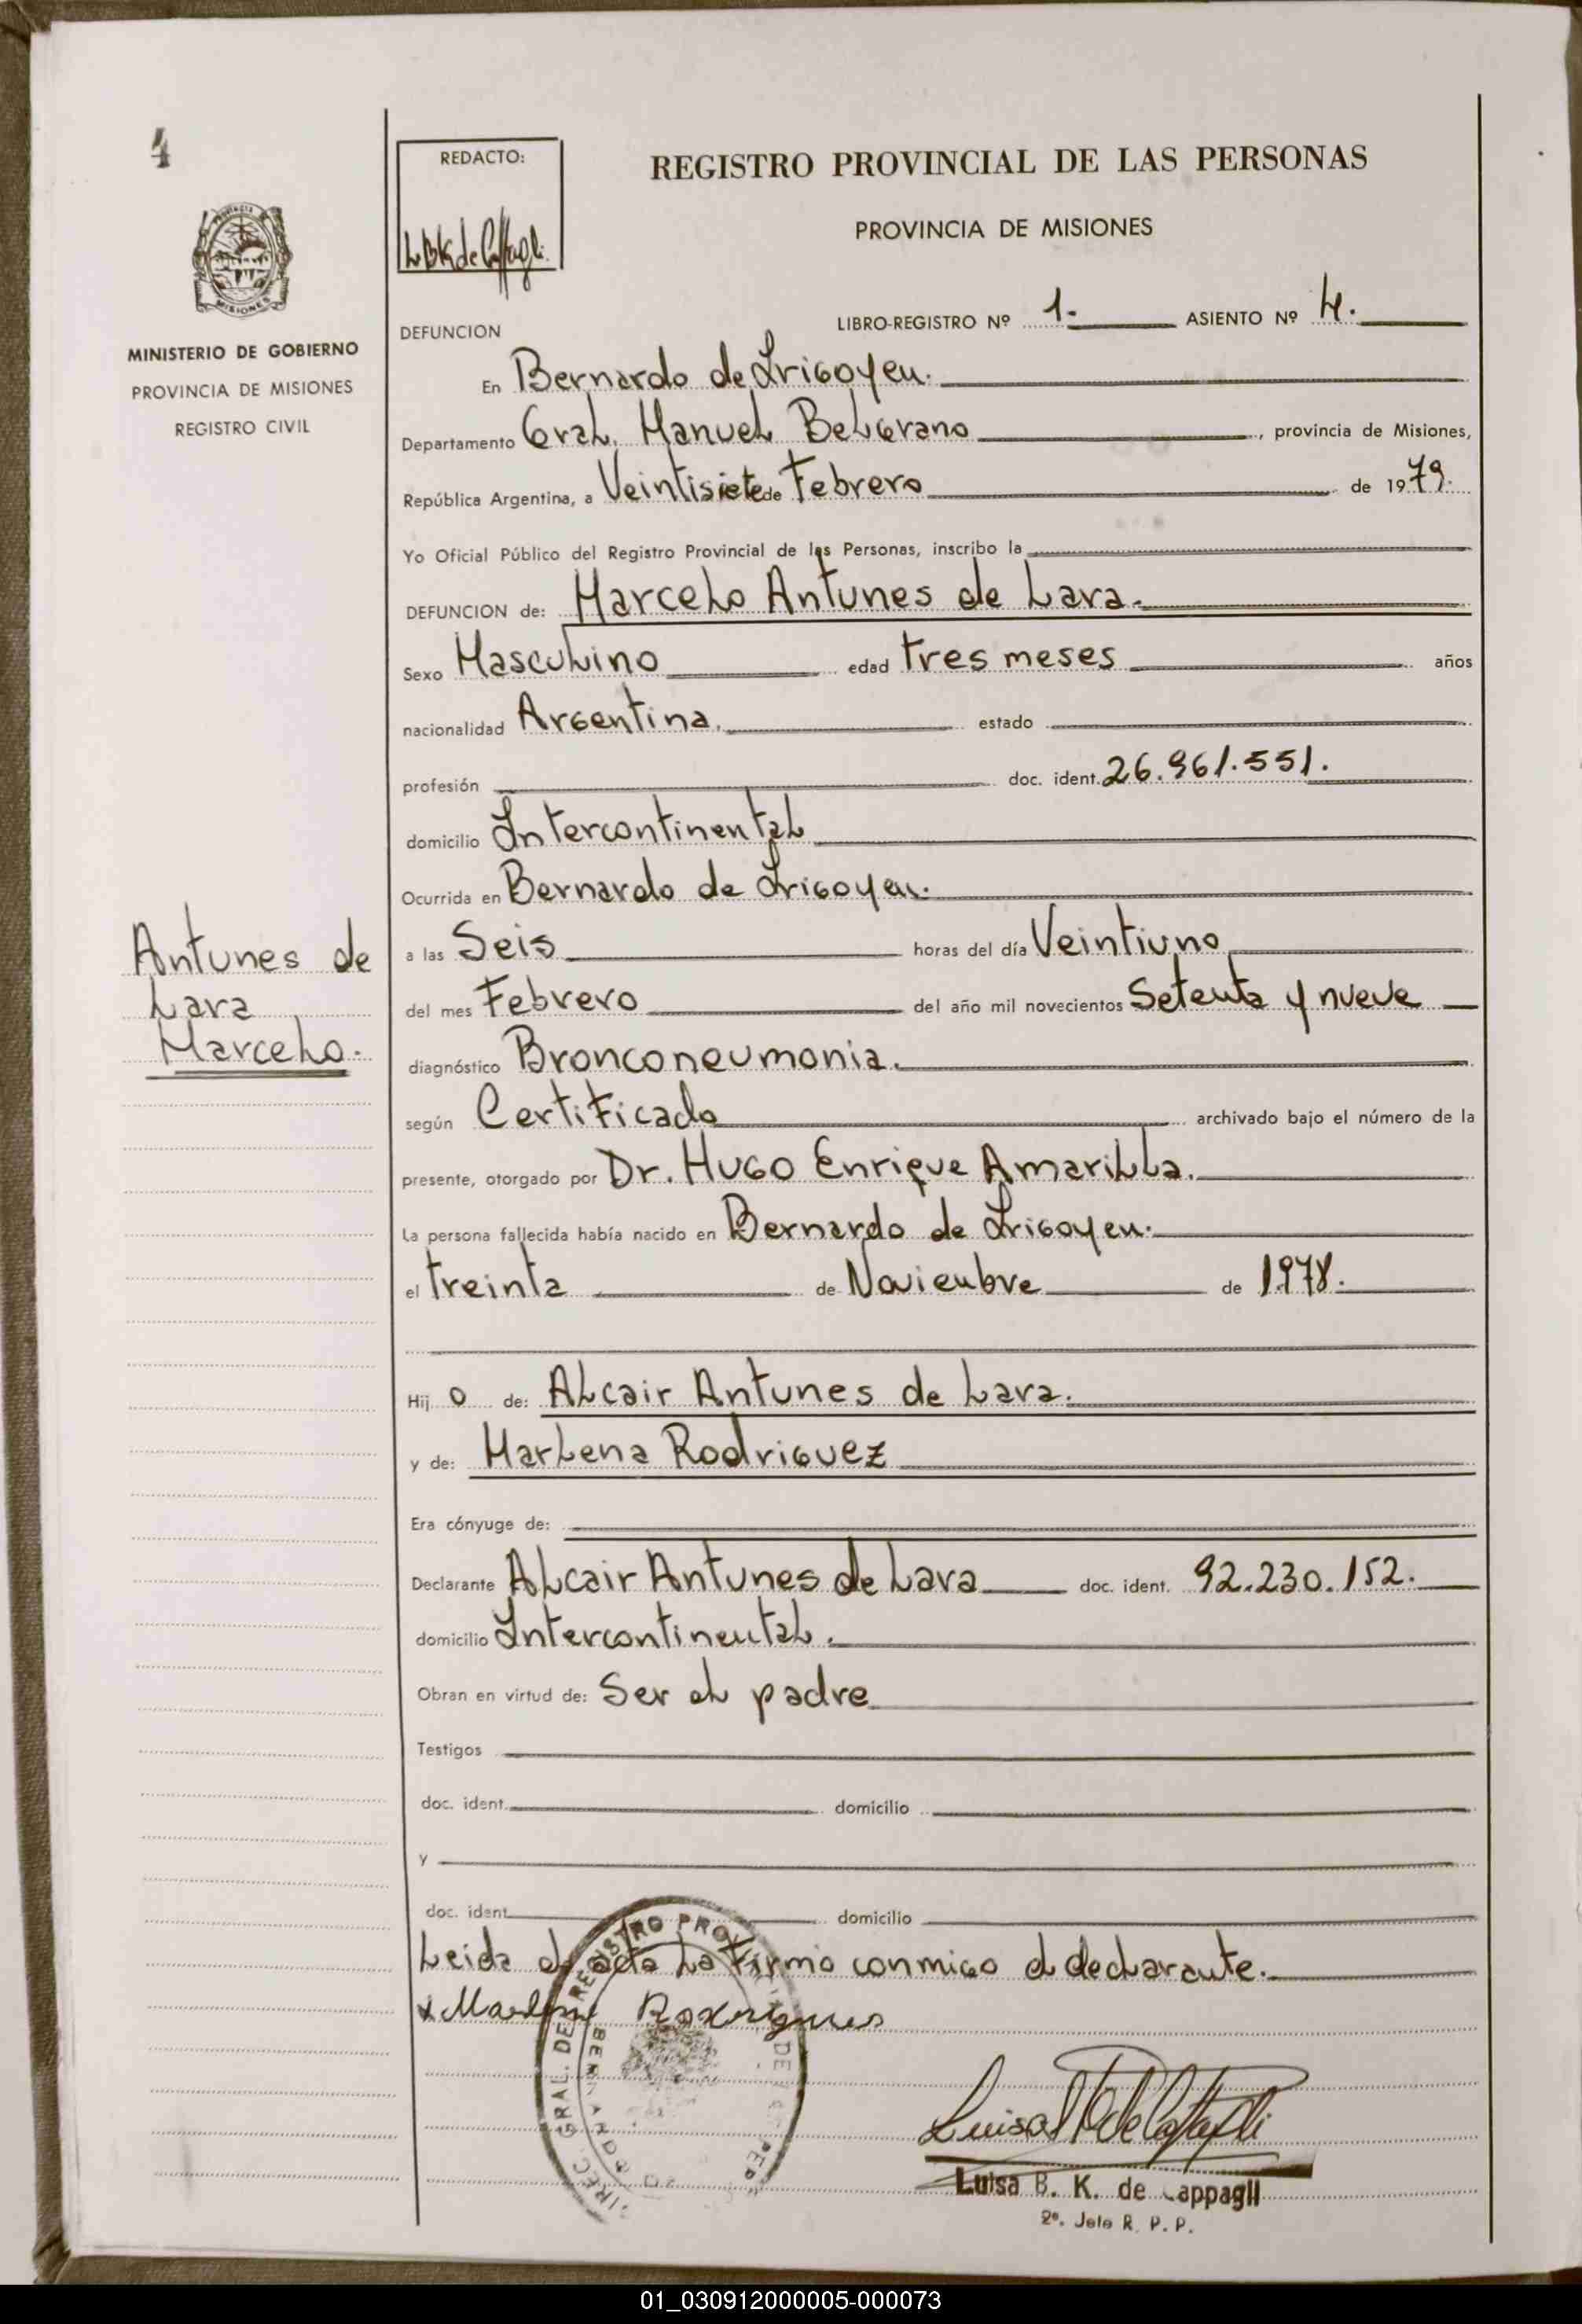 4
REDACTO:
REGISTRO PROVINCIAL DE LAS PERSONAS
PROVINCIA DE MISIONES
MISIONES
MINISTERIO DE GOBIERNO
PROVINCIA DE MISIONES
REGISTRO CIVIL
LIBRO-REGISTRO Nº 1. ASIENTO Nº 4.
DEFUNCION
En Bernardo de Irigoyen.
Departamento Gral. Manuel Belgrano, provincia de Misiones,
República Argentina, a Veintisiete de Febrero de 1979.
Yo Oficial Público del Registro Provincial de las Personas, inscribo la
DEFUNCION de: Marcelo Antunes de Lara.
Sexo Masculino edad tres meses años
nacionalidad Argentina. estado
profesión doc. ident. 26.961.551.
domicilio Intercontinental
Ocurrida en Bernardo de Irigoyen.
a las Seis horas del día Veintiuno
del mes Febrero del año mil novecientos Setenta y nueve
diagnóstico Bronconeumonia.
según Certificado archivado bajo el número de la
presente, otorgado por Dr. Hugo Enrique Amarilla.
La persona fallecida había nacido en Bernardo de Irigoyen.
el treinta de Noviembre de 1978.
Hij o de: Alcair Antunes de Lara.
y de: Marlena Rodriguez
Era cónyuge de:
Declarante Alcair Antunes de Lara doc. ident. 92.230.152.
domicilio Intercontinental.
Obran en virtud de: Ser el padre
Testigos
doc. ident. domicilio
y
doc. ident. domicilio
Leida el acta La firmo conmigo el declarante.
Antunes de
Lara
Marcelo.
Luisa B. K. de Cappagli
2º. Jefe R. P. P.
01_030912000005-000073